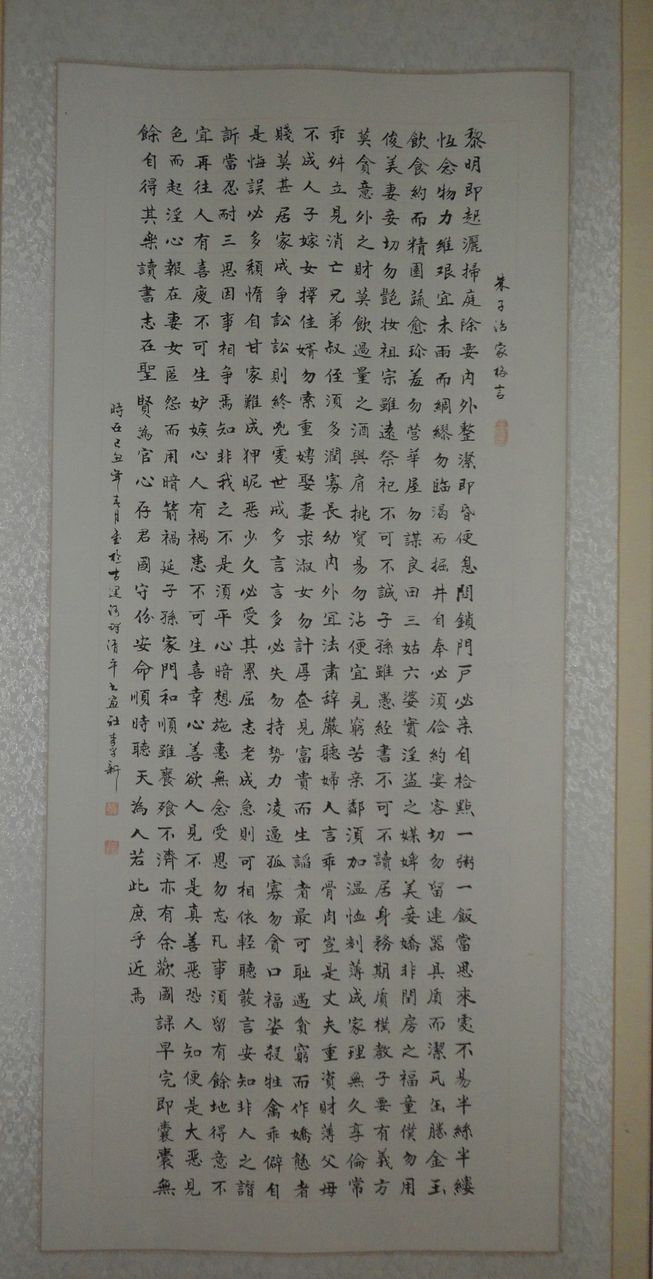 朱子治家格言
黎明即起灑掃庭除要內外整潔即昏便息關鎖門戶必亲自檢點一粥一飯當思來處不易半絲半縷
恆念物力維艰宜未雨而綢繆勿臨渴而掘井自奉必須儉約宴客切勿留連器具质而潔瓦缶勝金玉
飲食約而精園蔬愈珍羞勿營華屋勿謀良田三姑六婆實淫盗之媒婢美妾嬌非閨房之福童僕勿用
俊美妻妾切勿艷妝祖宗雖遠祭祀不可不誠子孫雖愚經書不可不讀居身務期质樸教子要有義方
莫貪意外之財莫飲過量之酒與肩挑貿易勿沾便宜見窮苦亲鄰須加温恤刻薄成家理無久享倫常
乖舛立見消亡兄弟叔侄須多潤寡長幼內外宜法肅辞嚴聽婦人言乖骨肉豈是丈夫重資財薄父母
不成人子嫁女擇佳婿勿索重娉娶妻求淑女勿計厚奩見富貴而生諂者最可耻遇貧窮而作嬌態者
賤莫甚居家戒争訟訟則終兇處世戒多言言多必失勿持勢力凌逼孤寡勿貪口福恣殺牲禽乖僻自
是悔誤必多頹惰自甘家難成狎昵惡少久必受其累屈志老成急則可相依輕聽發言安知非人之譖
訴當忍耐三思因事相争焉知非我之不是須平心暗想施惠無念受恩勿忘凡事須留有餘地得意不
宜再往人有喜慶不可生妒嫉心人有禍患不可生喜幸心善欲人見不是真善惡恐人知便是大惡見
色而起淫心報在妻女匿怨而用暗箭禍延子孫家門和順雖饔飧不濟亦有余歡國課早完即囊橐無
餘自得其樂讀書志在聖賢為官心存君國守份安命順時聽天為人若此庶乎近焉
時在己丑年春月書於古運河畔清平書画社